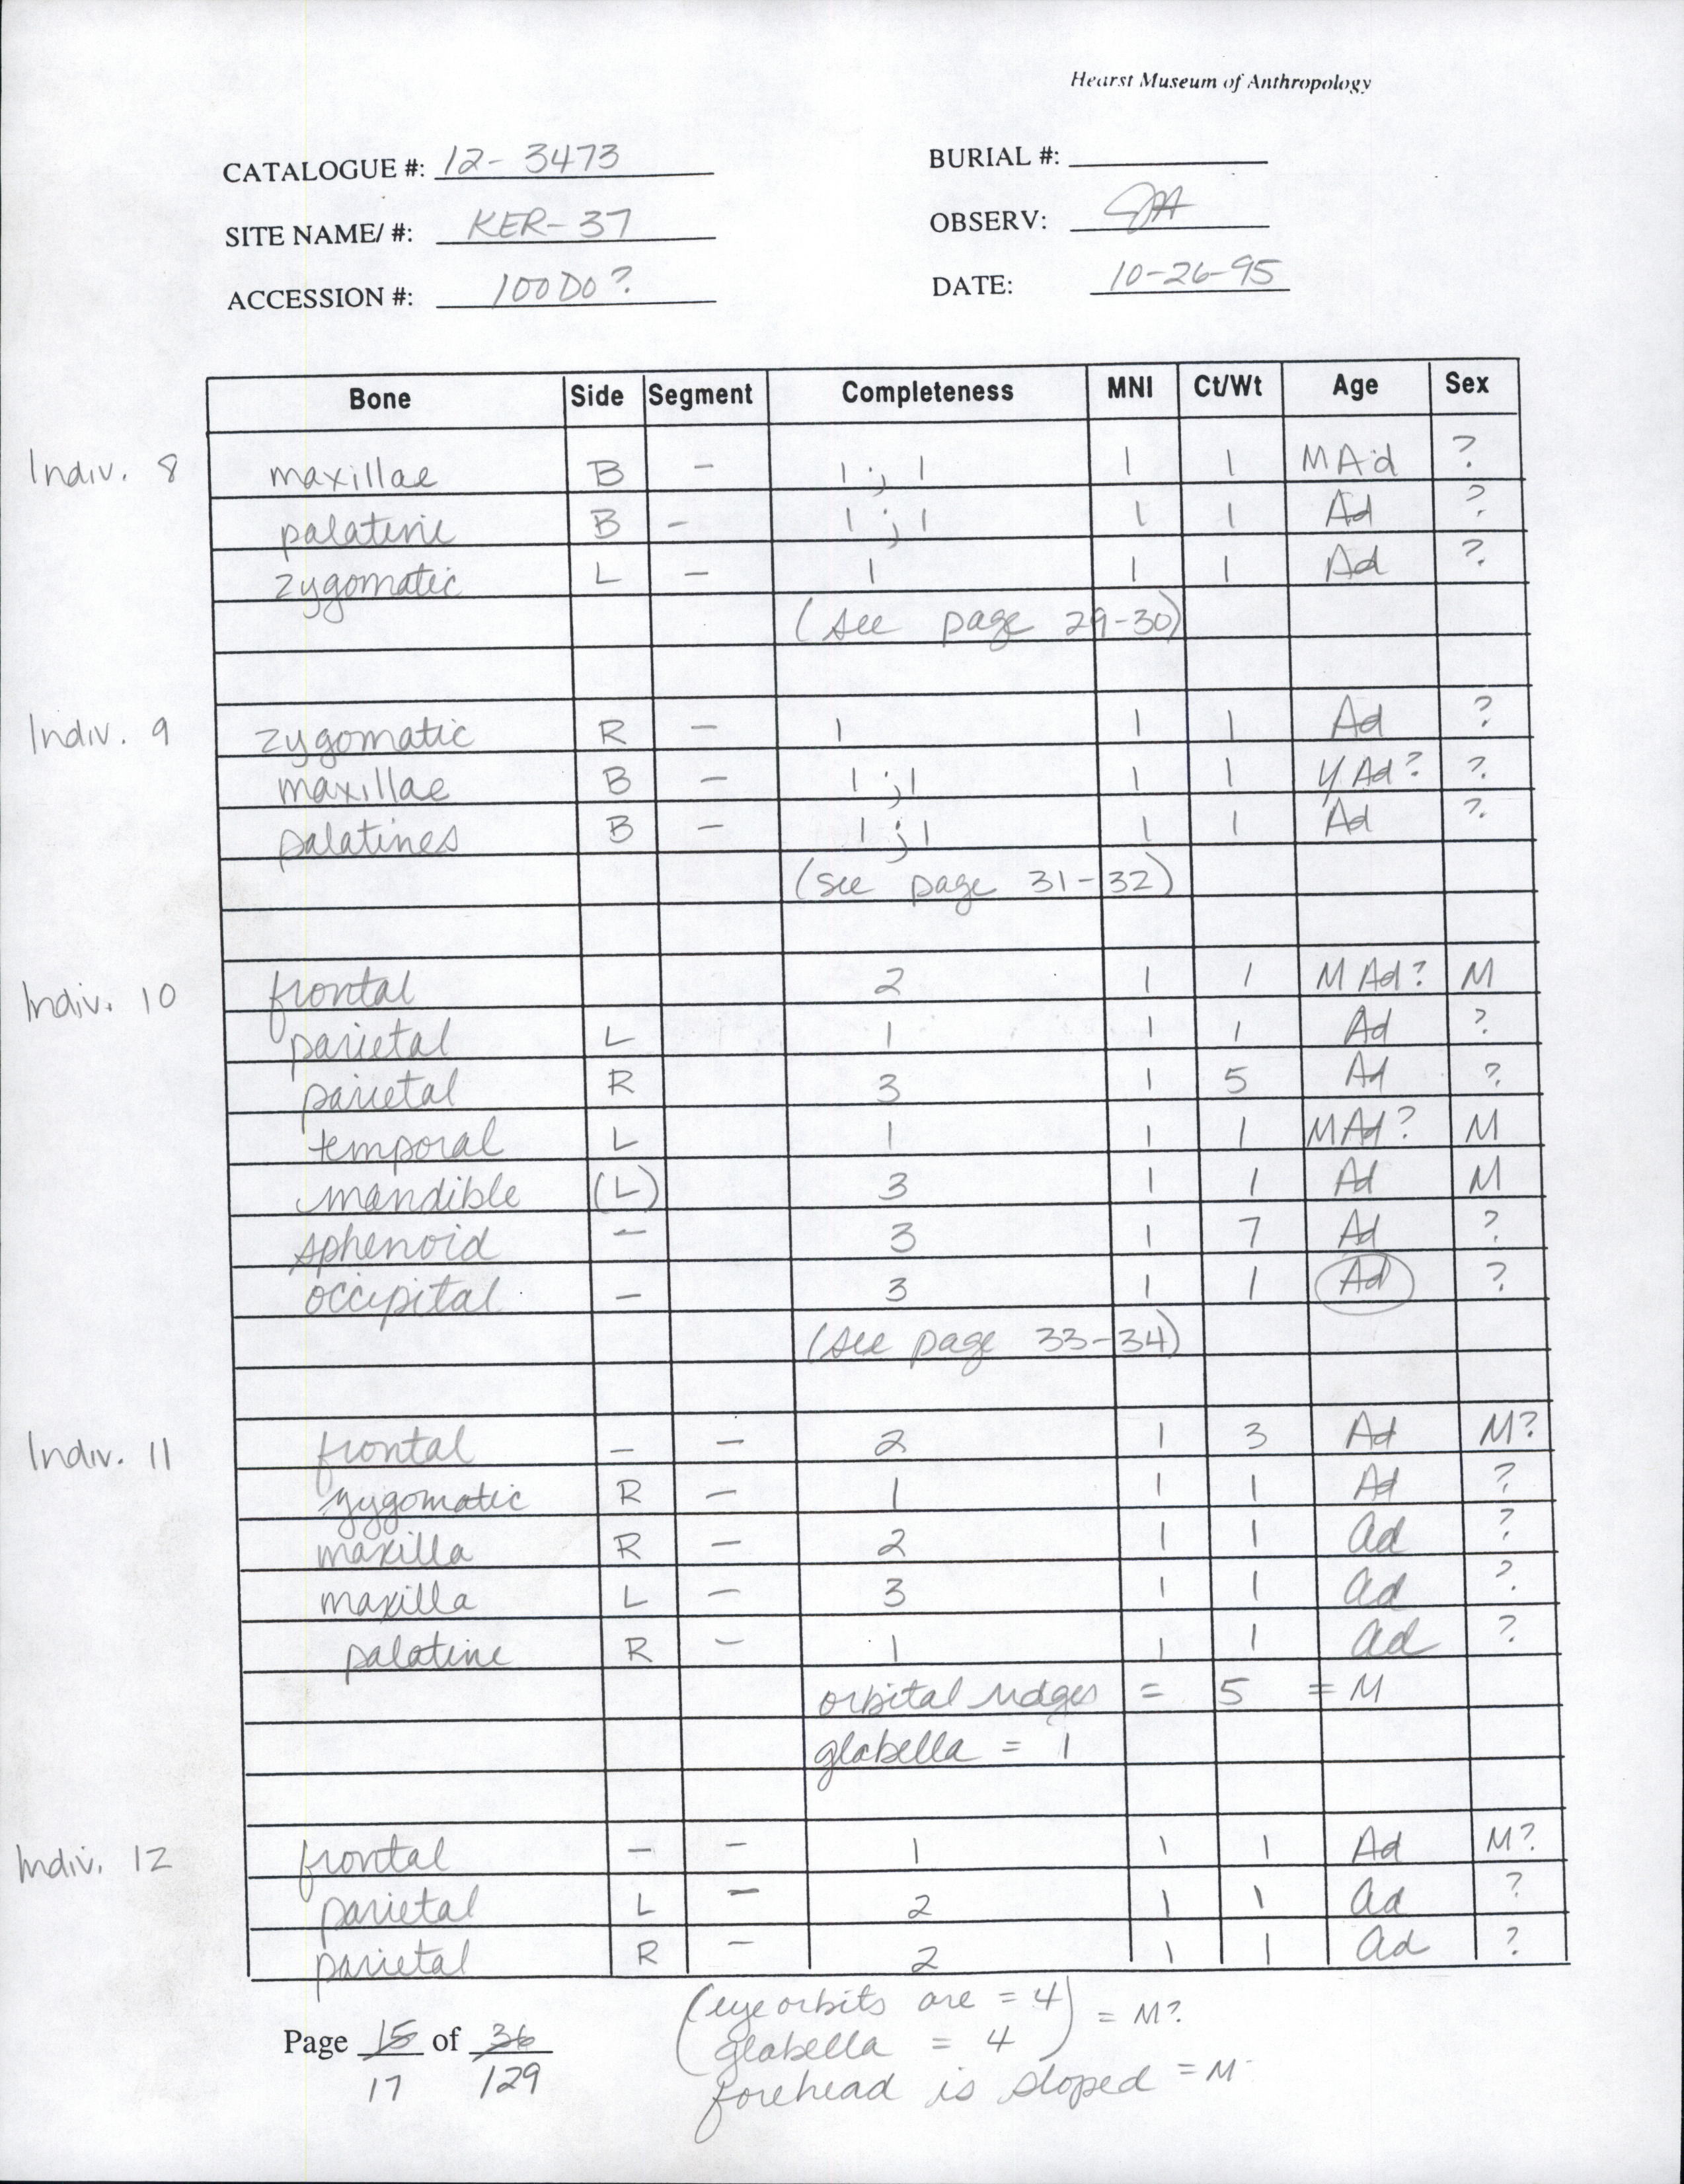 Hearst Museum of Anthropology
CATALOGUE #: 12-3473 BURIAL #:
SITE NAME/ #: KER-37 OBSERV:
ACCESSION #: 100DO? DATE: 10-26-95
Bone Side Segment Completeness MNI Ct/Wt Age Sex
Indiv. 8 maxillae B - 1 ; 1 1 1 MAd ?
palatine B - 1 ; 1 1 1 Ad ?
zygomatic L - 1 1 1 Ad ?
(see page 29-30)
Indiv. 9 zygomatic R - 1 1 1 Ad ?
maxillae B - 1 ; 1 1 1 Y Ad? ?
palatines B - 1 ; 1 1 1 Ad ?
(see page 31-32)
Indiv. 10 frontal 2 1 1 M Ad? M
parietal L 1 1 1 Ad ?
parietal R 3 1 5 Ad ?
temporal L 1 1 1 MAd? M
mandible (L) 3 1 1 Ad M
sphenoid - 3 1 7 Ad ?
occipital - 3 1 1 Ad ?
(see page 33-34)
Indiv. 11 frontal - - 2 1 3 Ad M?
zygomatic R - 1 1 1 Ad ?
maxilla R - 2 1 1 Ad ?
maxilla L - 3 1 1 Ad ?
palatine R - 1 1 1 Ad ?
orbital ridges = 5 = M
glabella = 1
Indiv. 12 frontal - - 1 1 1 Ad M?
parietal L - 2 1 1 Ad ?
parietal R - 2 1 1 Ad ?
(eye orbits are = 4
glabella = 4) = M?
forehead is sloped = M
Page 15 of 36
17 129